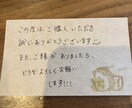 この度は ご購入 いただき
誠にありがとうございます
また、ご縁が ありましたら
どうぞ よろしくお願い
します!!